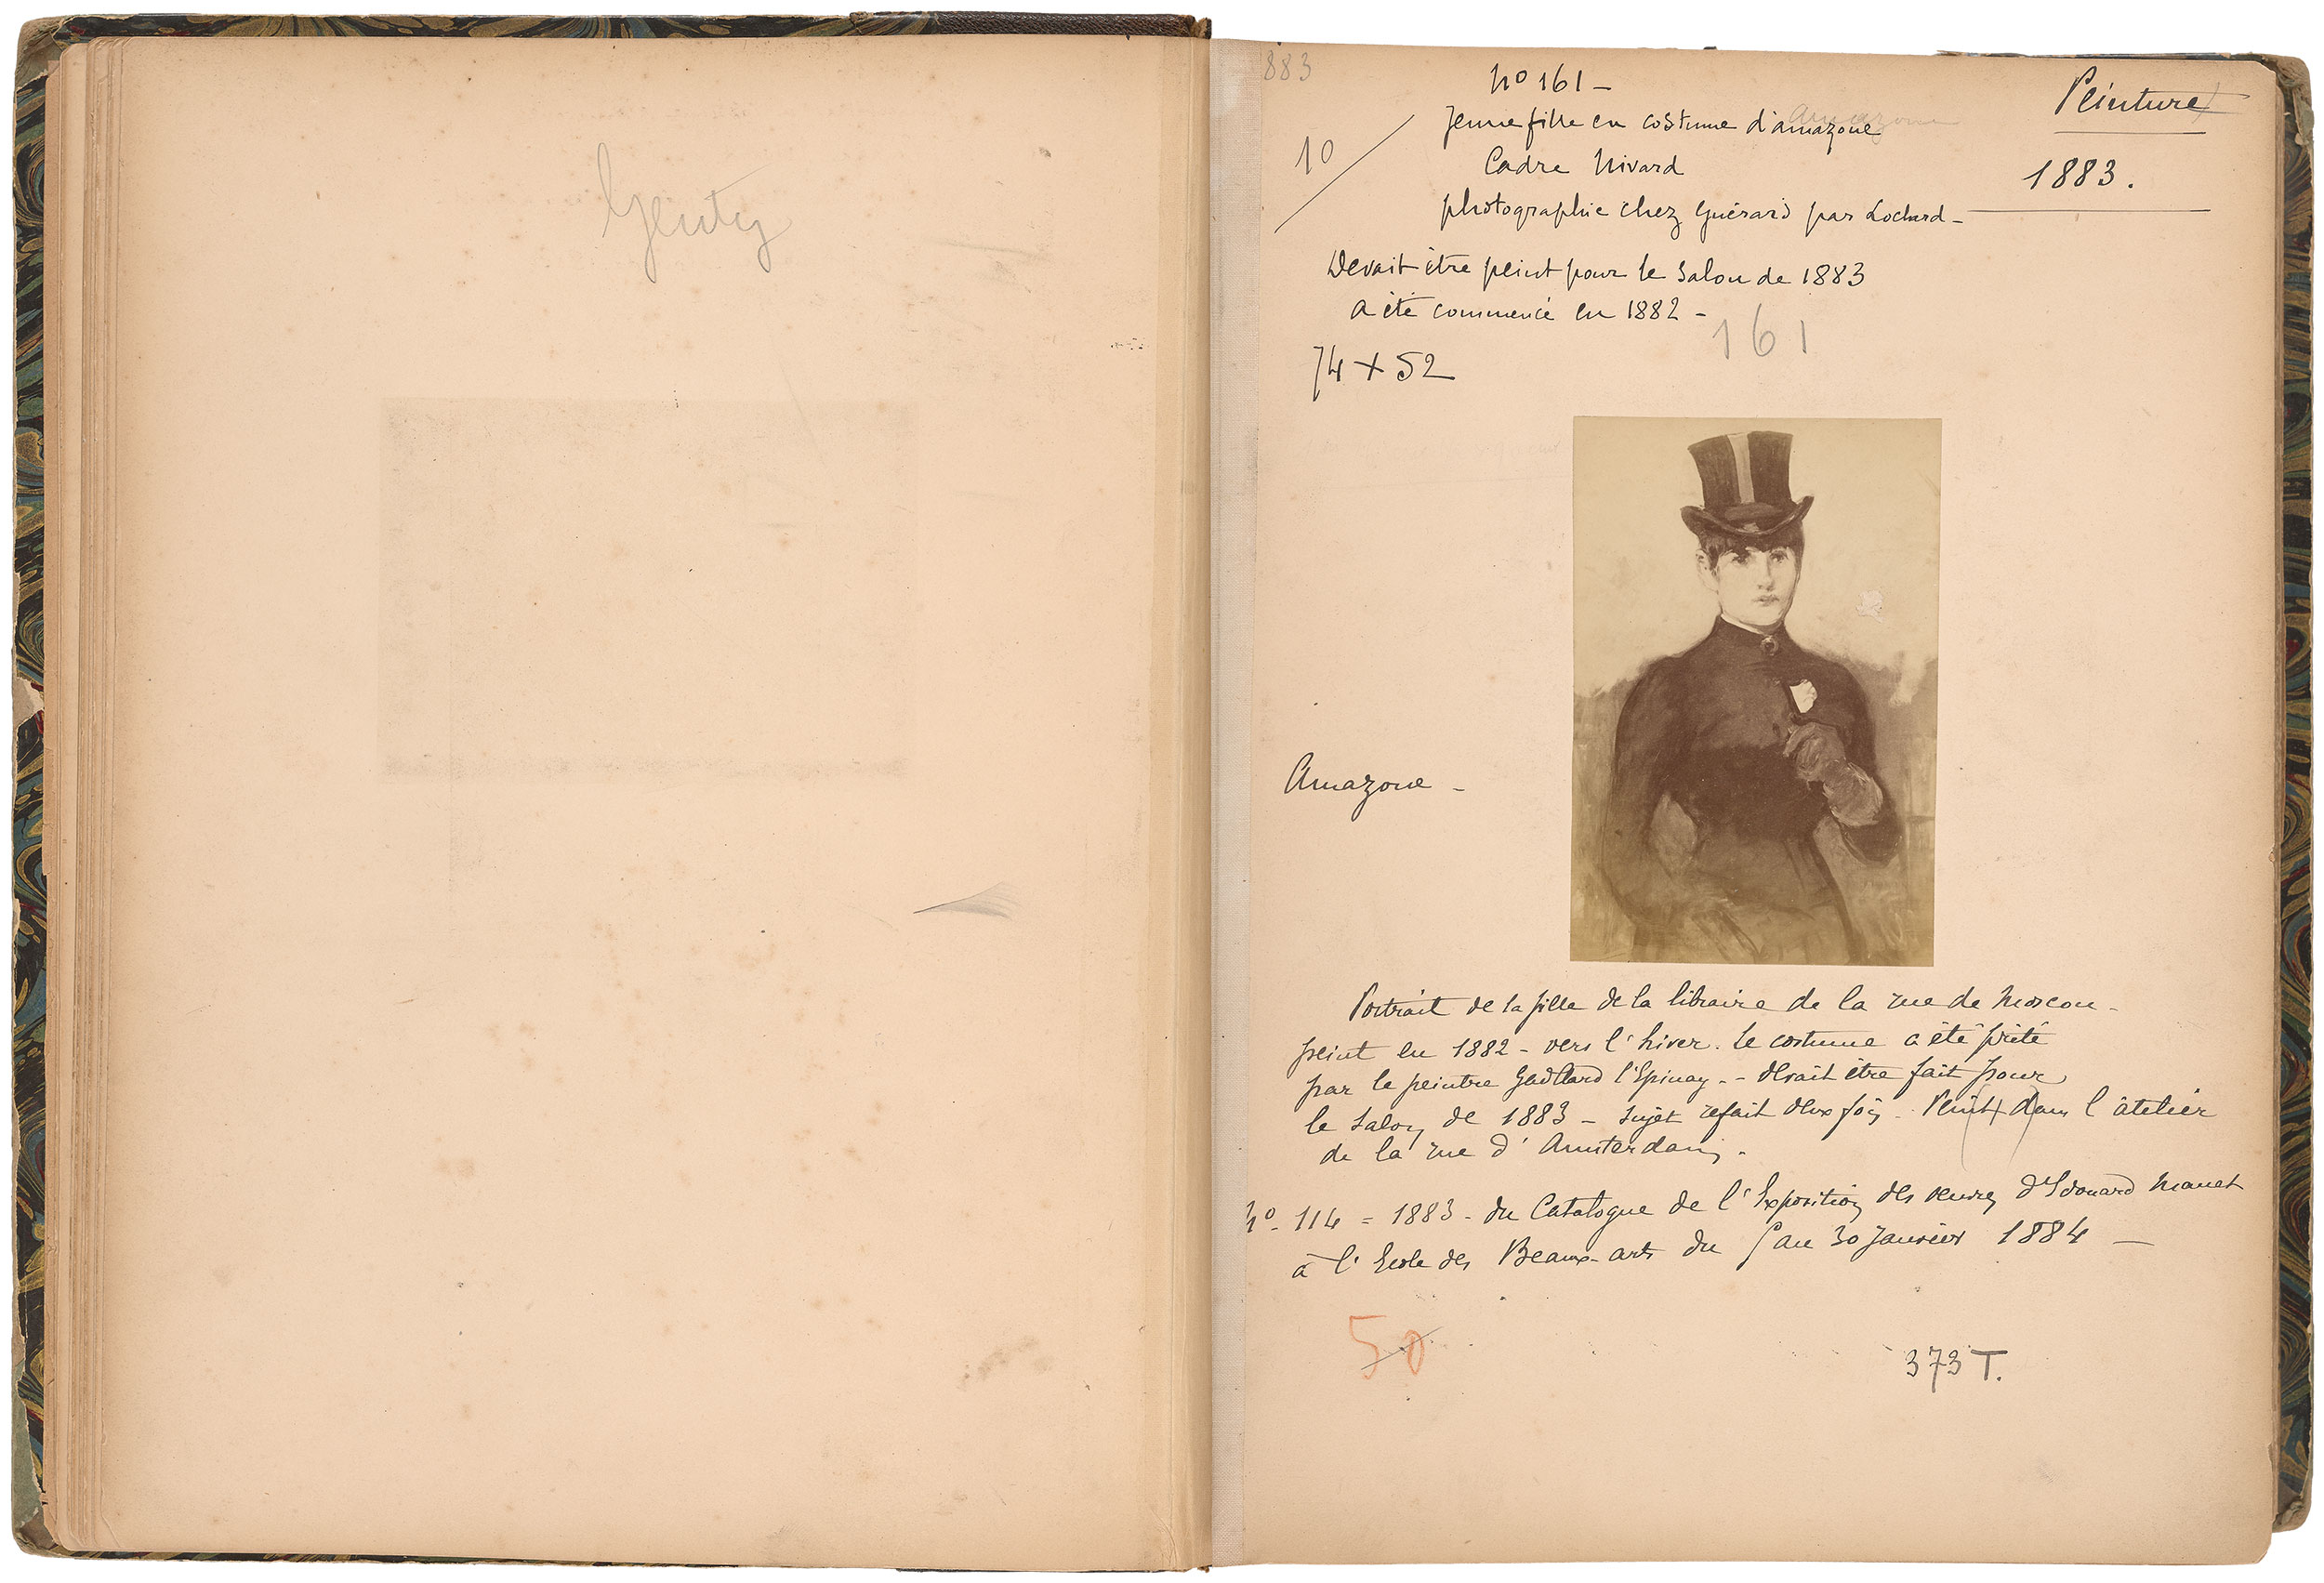 Genty
883
nº 161 –
Peinture
Jeune fille en costume d'amazone
Amazone
10
Cadre Nivard
1883.
photographie chez Guérard par Lochard –
Devait être peint pour le Salon de 1883
a été commencé en 1882 –
161
74 + 52
Amazone –
Portrait de la fille de la libraire de la rue de Moscou –
peint en 1882 – vers l'hiver. le costume a été prêté
par le peintre Gaillard l'Epinay. – devait être fait pour
le Salon de 1883 – Sujet refait deux fois – Peint dans l'âtelier
de la rue d'Amsterdam.
nº. 114 = 1883 – du Catalogue de l'Exposition des œuvres d'Edouard Manet
à l'Ecole des Beaux-arts du 5 au 30 Janvier 1884 –
50
373 T.